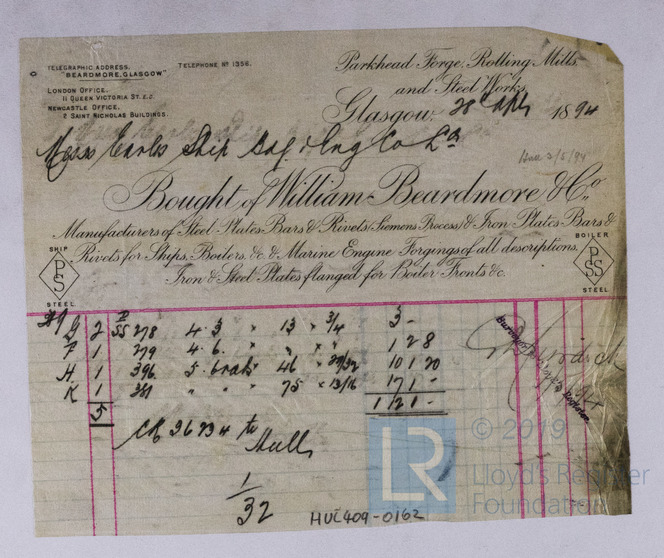 TELEGRAPHIC ADDRESS,
"BEARDMORE, GLASGOW"
TELEPHONE No 1356.
LONDON OFFICE,
11 QUEEN VICTORIA ST. E.C.
NEWCASTLE OFFICE,
2 SAINT NICHOLAS BUILDINGS.
Parkhead Forge, Rolling Mills,
and Steel Works,
Glasgow, 28th Apl 1894
Messrs Earles Ship Bdg & Eng Co Ld
3/5/94
Bought of William Beardmore & Co
Manufacturers of Steel Plates Bars & Rivets (Siemens Process) & Iron Plates Bars &
Rivets for Ships, Boilers, &c. & Marine Engine Forgings of all descriptions,
Iron & Steel Plates flanged for Boiler Fronts &c.
SHIP
PS
STEEL
BOILER
PSS
STEEL
2 278 4.3 " 13 " 3/4 3 -
1 279 4.6 " " " " 1 2 8
H 1 396 5. " 46 " 10 1 20
K 1 " " " 75 " 13/16 17 1 -
5 1 12 1 -
36734 to
Hull
1/32
HUL409-0162
© 2019
LR
Lloyd's Register
Foundation